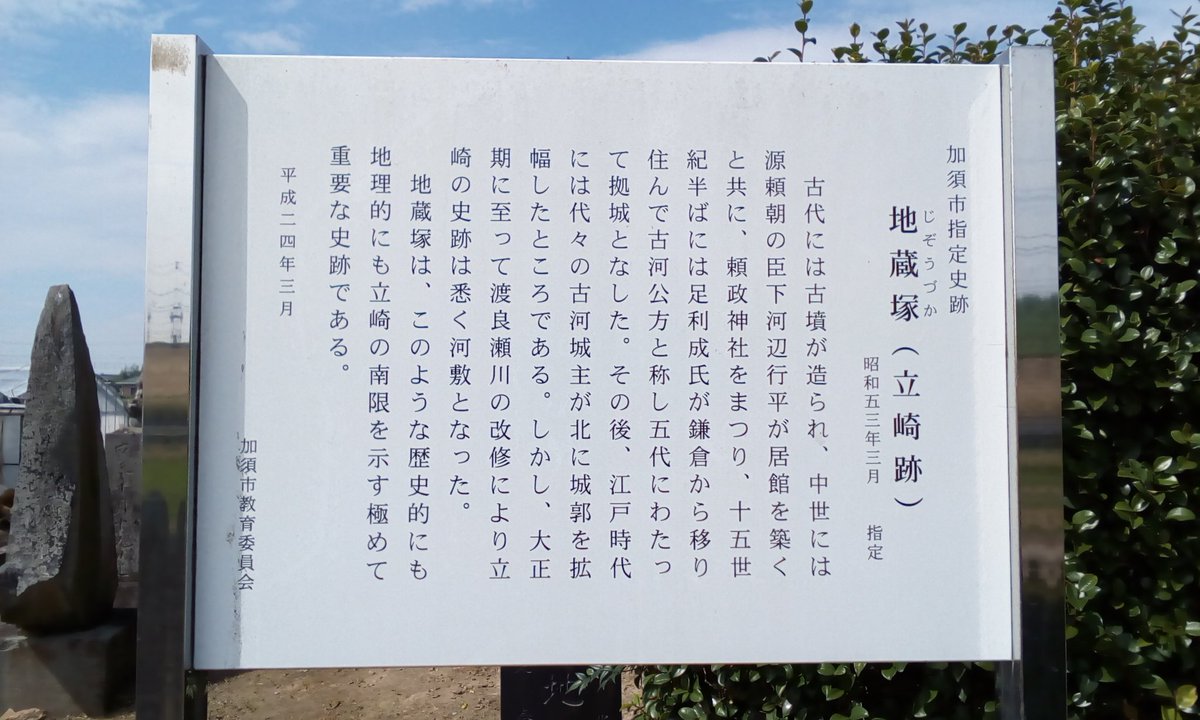 加須市指定史跡
じぞうづか
地蔵塚(立崎跡)
昭和五三年三月 指定
古代には古墳が造られ、中世には
源頼朝の臣下河辺行平が居館を築く
と共に、頼政神社をまつり、十五世
紀半ばには足利成氏が鎌倉から移り
住んで古河公方と称し五代にわたっ
て拠城となした。その後、江戸時代
には代々の古河城主が北に城郭を拡
幅したところである。しかし、大正
期に至って渡良瀬川の改修により立
崎の史跡は悉く河敷となった。
地蔵塚は、このような歴史的にも
地理的にも立崎の南限を示す極めて
重要な史跡である。
平成二四年三月
加須市教育委員会
地